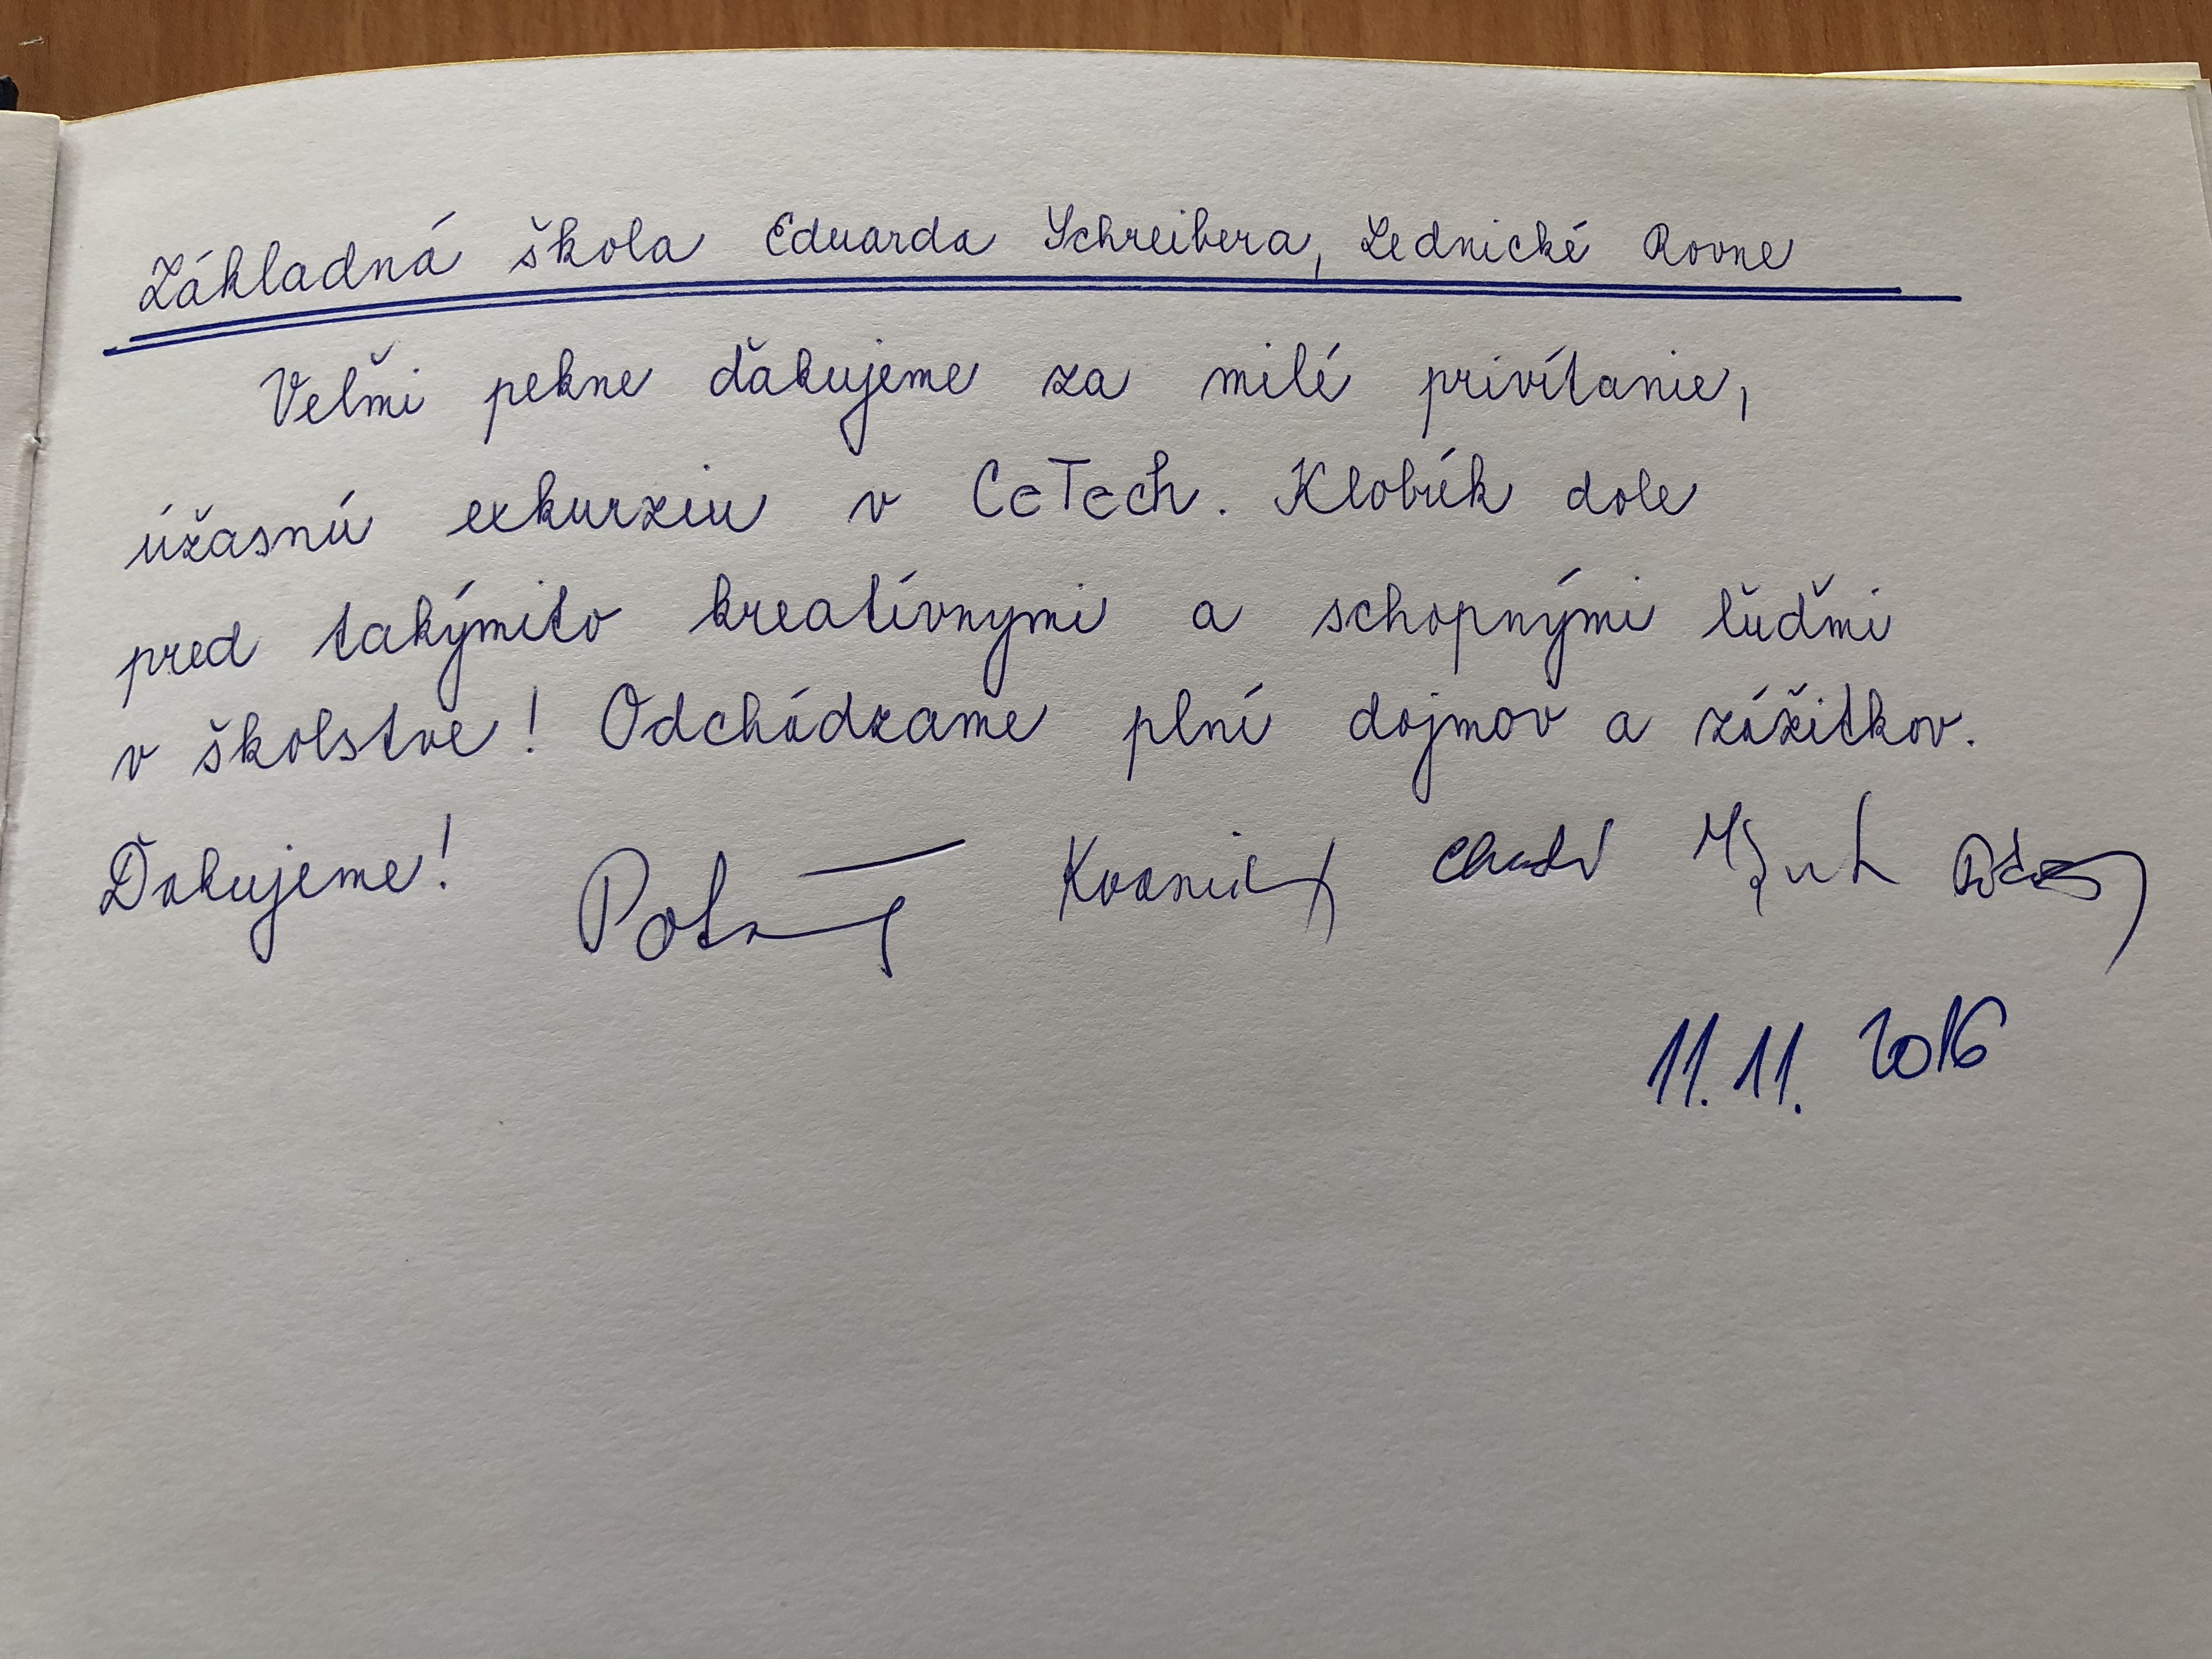 Základná škola Eduarda Schreibera, Lednické Rovne
Veľmi pekne ďakujeme za milé privítanie,
úžasnú exkurziu v CeTech. Klobúk dole
pred takýmito kreatívnymi a schopnými ľuďmi
v školstve! Odchádzame plní dojmov a zážitkov.
Ďakujeme!
11.11. 2016